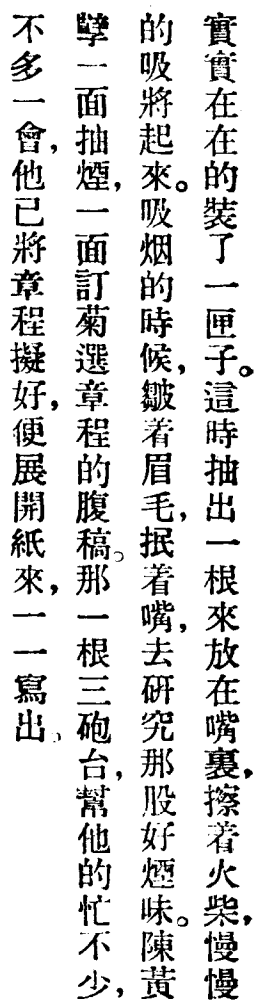 實實在在的裝了一匣子。這時抽出一根來放在嘴裏，擦着火柴，慢慢
的吸將起來。吸烟的時候，皺着眉毛，抿着嘴，去研究那股好煙味。陳黃
孽一面抽煙，一面訂菊選章程的腹稿。那一根三砲台，幫他的忙不少，
不多一會，他已將章程擬好，便展開紙來，一一寫出。